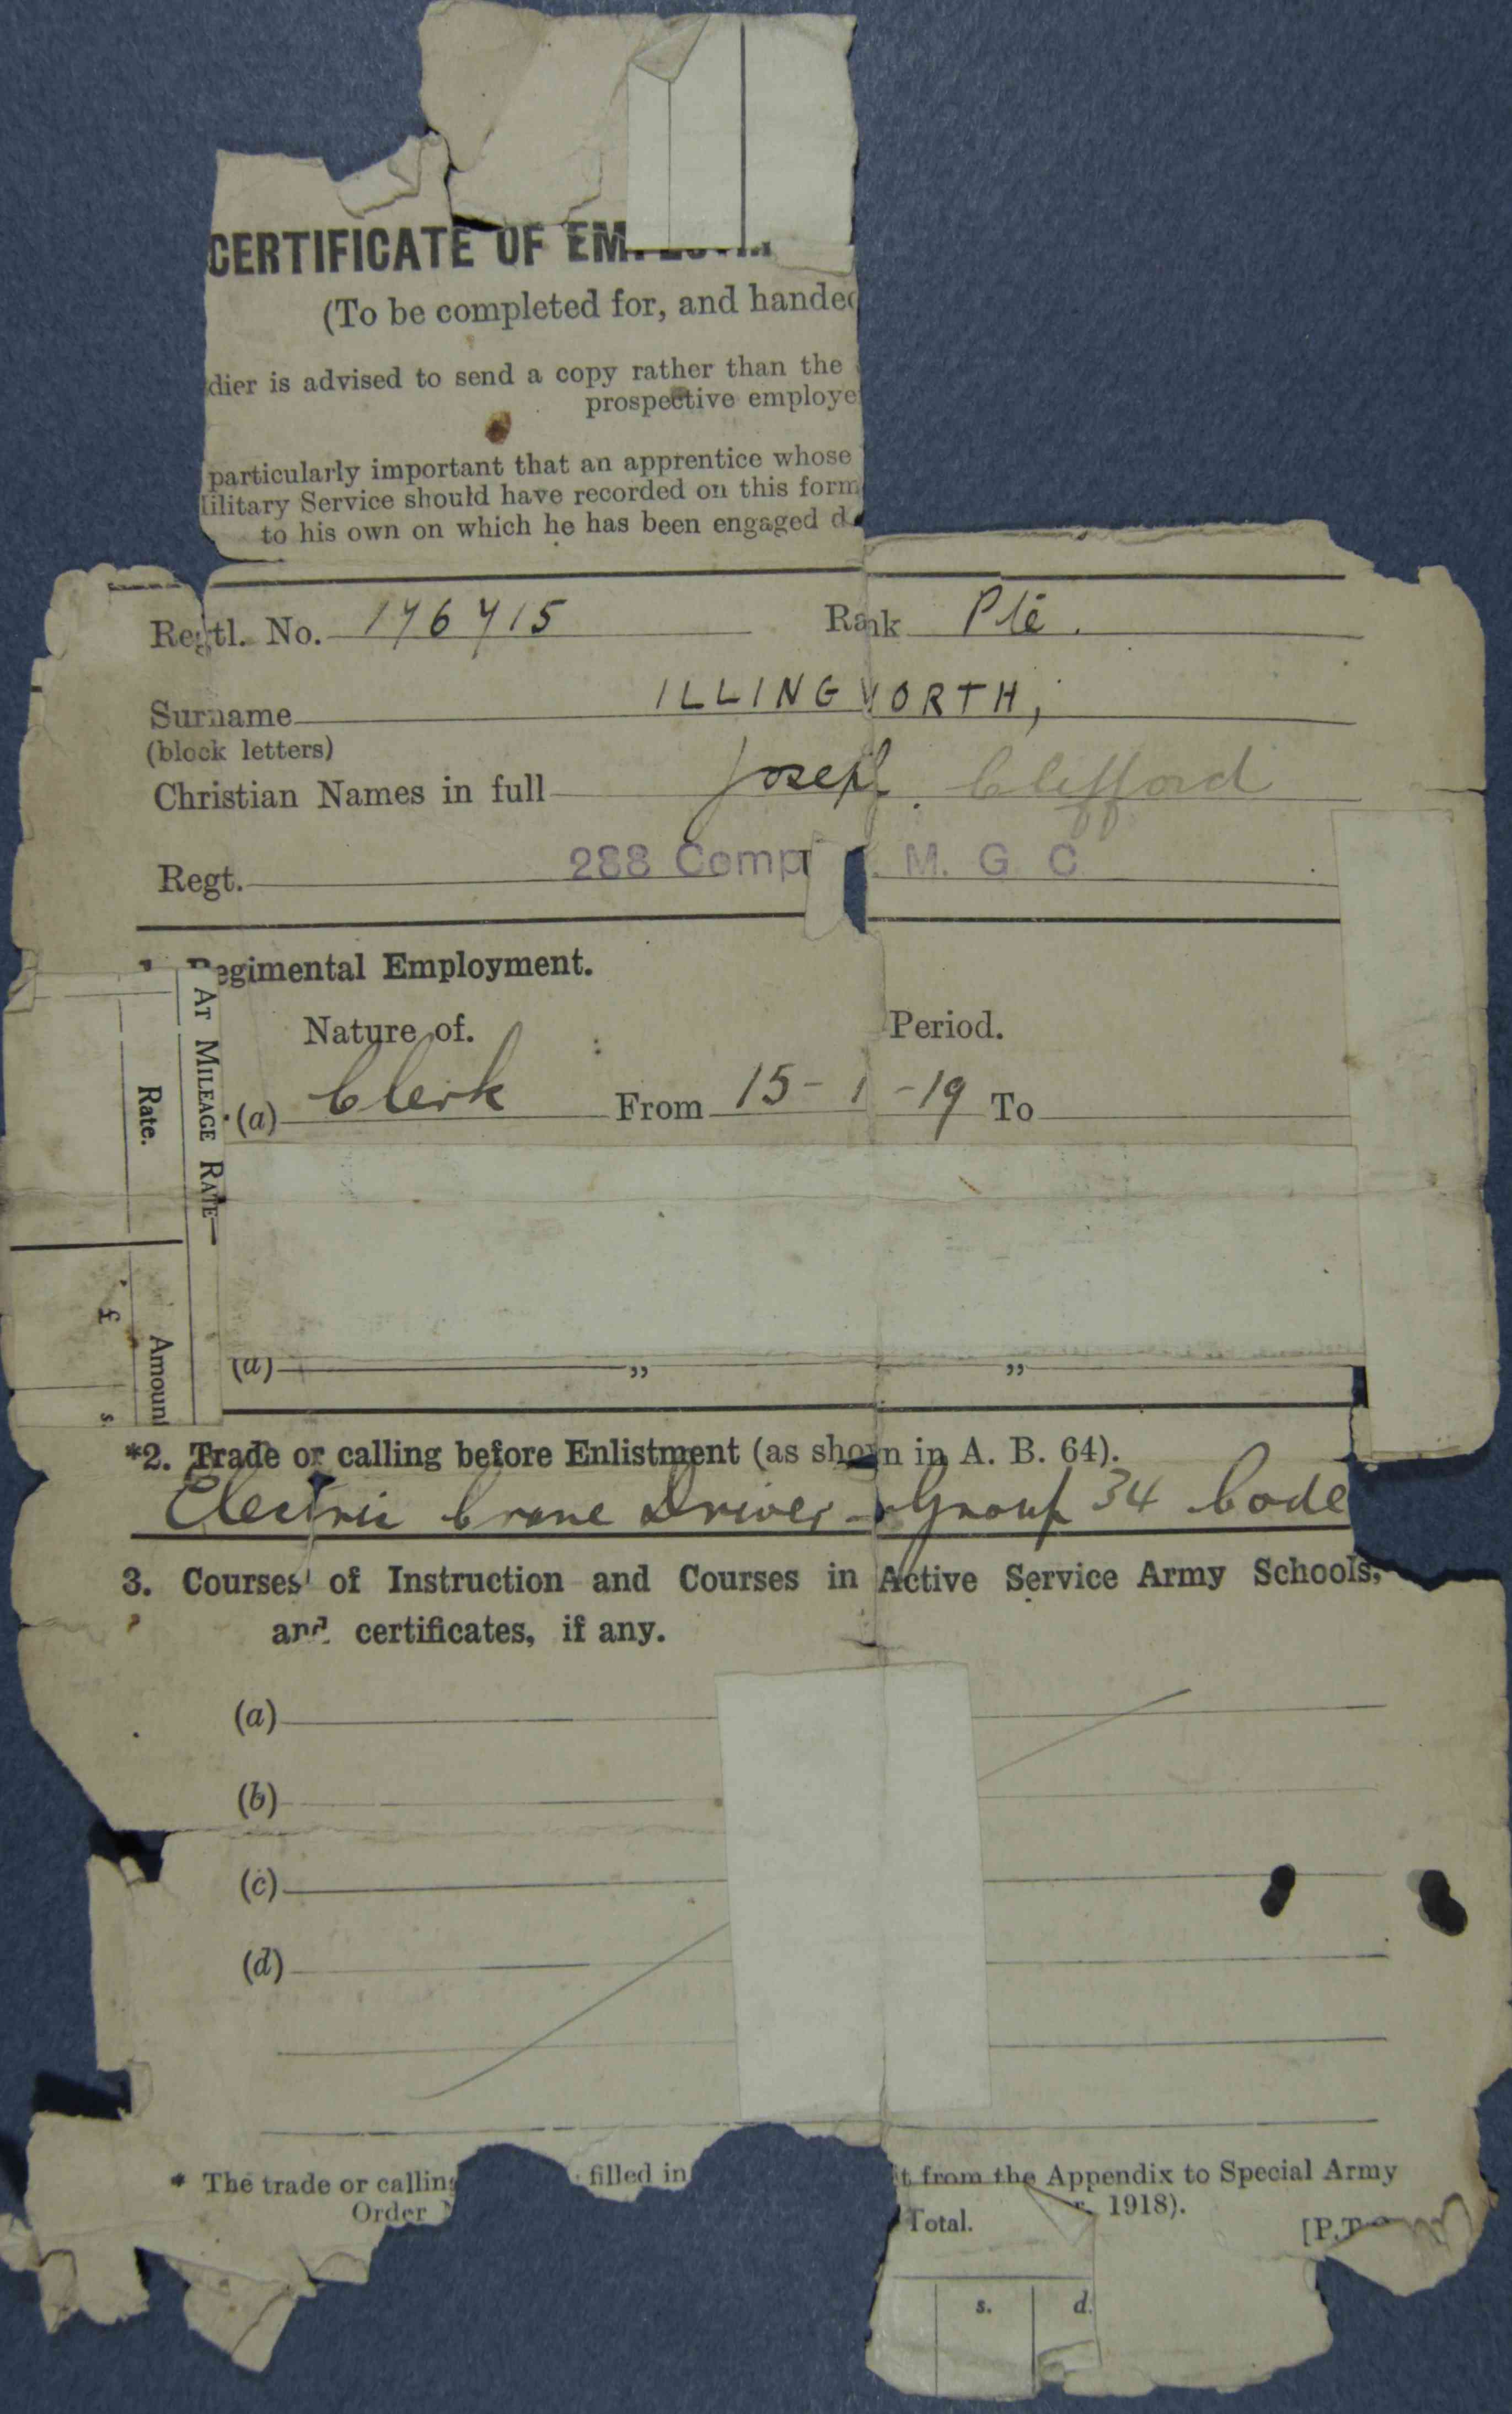 CERTIFICATE OF
(To be completed for, and handed
dier is advised to send a copy rather than the
prospective employe
particularly important that an apprentice whose
ilitary Service should have recorded on this form
to his own on which he has been engaged d
Regtl. No. 176715 Rank Pte.
Surname ILLINGWORTH,
(block letters)
Christian Names in full Joseph Clifford
Regt. 288 Comp M. G. C
Regimental Employment.
Nature of. Period.
(a) Clerk From 15-1-19 To
(d) „ „
*2. Trade or calling before Enlistment (as shown in A. B. 64).
Electric Crane Driver - Group 34 Code
3. Courses of Instruction and Courses in Active Service Army Schools,
and certificates, if any.
(a)
(b)
(c)
(d)
* The trade or calling filled in t from the Appendix to Special Army
Order 1918).
[P.T.
Total.
s. d.
AT MILEAGE RATE—
Rate.
Amount
£ s.